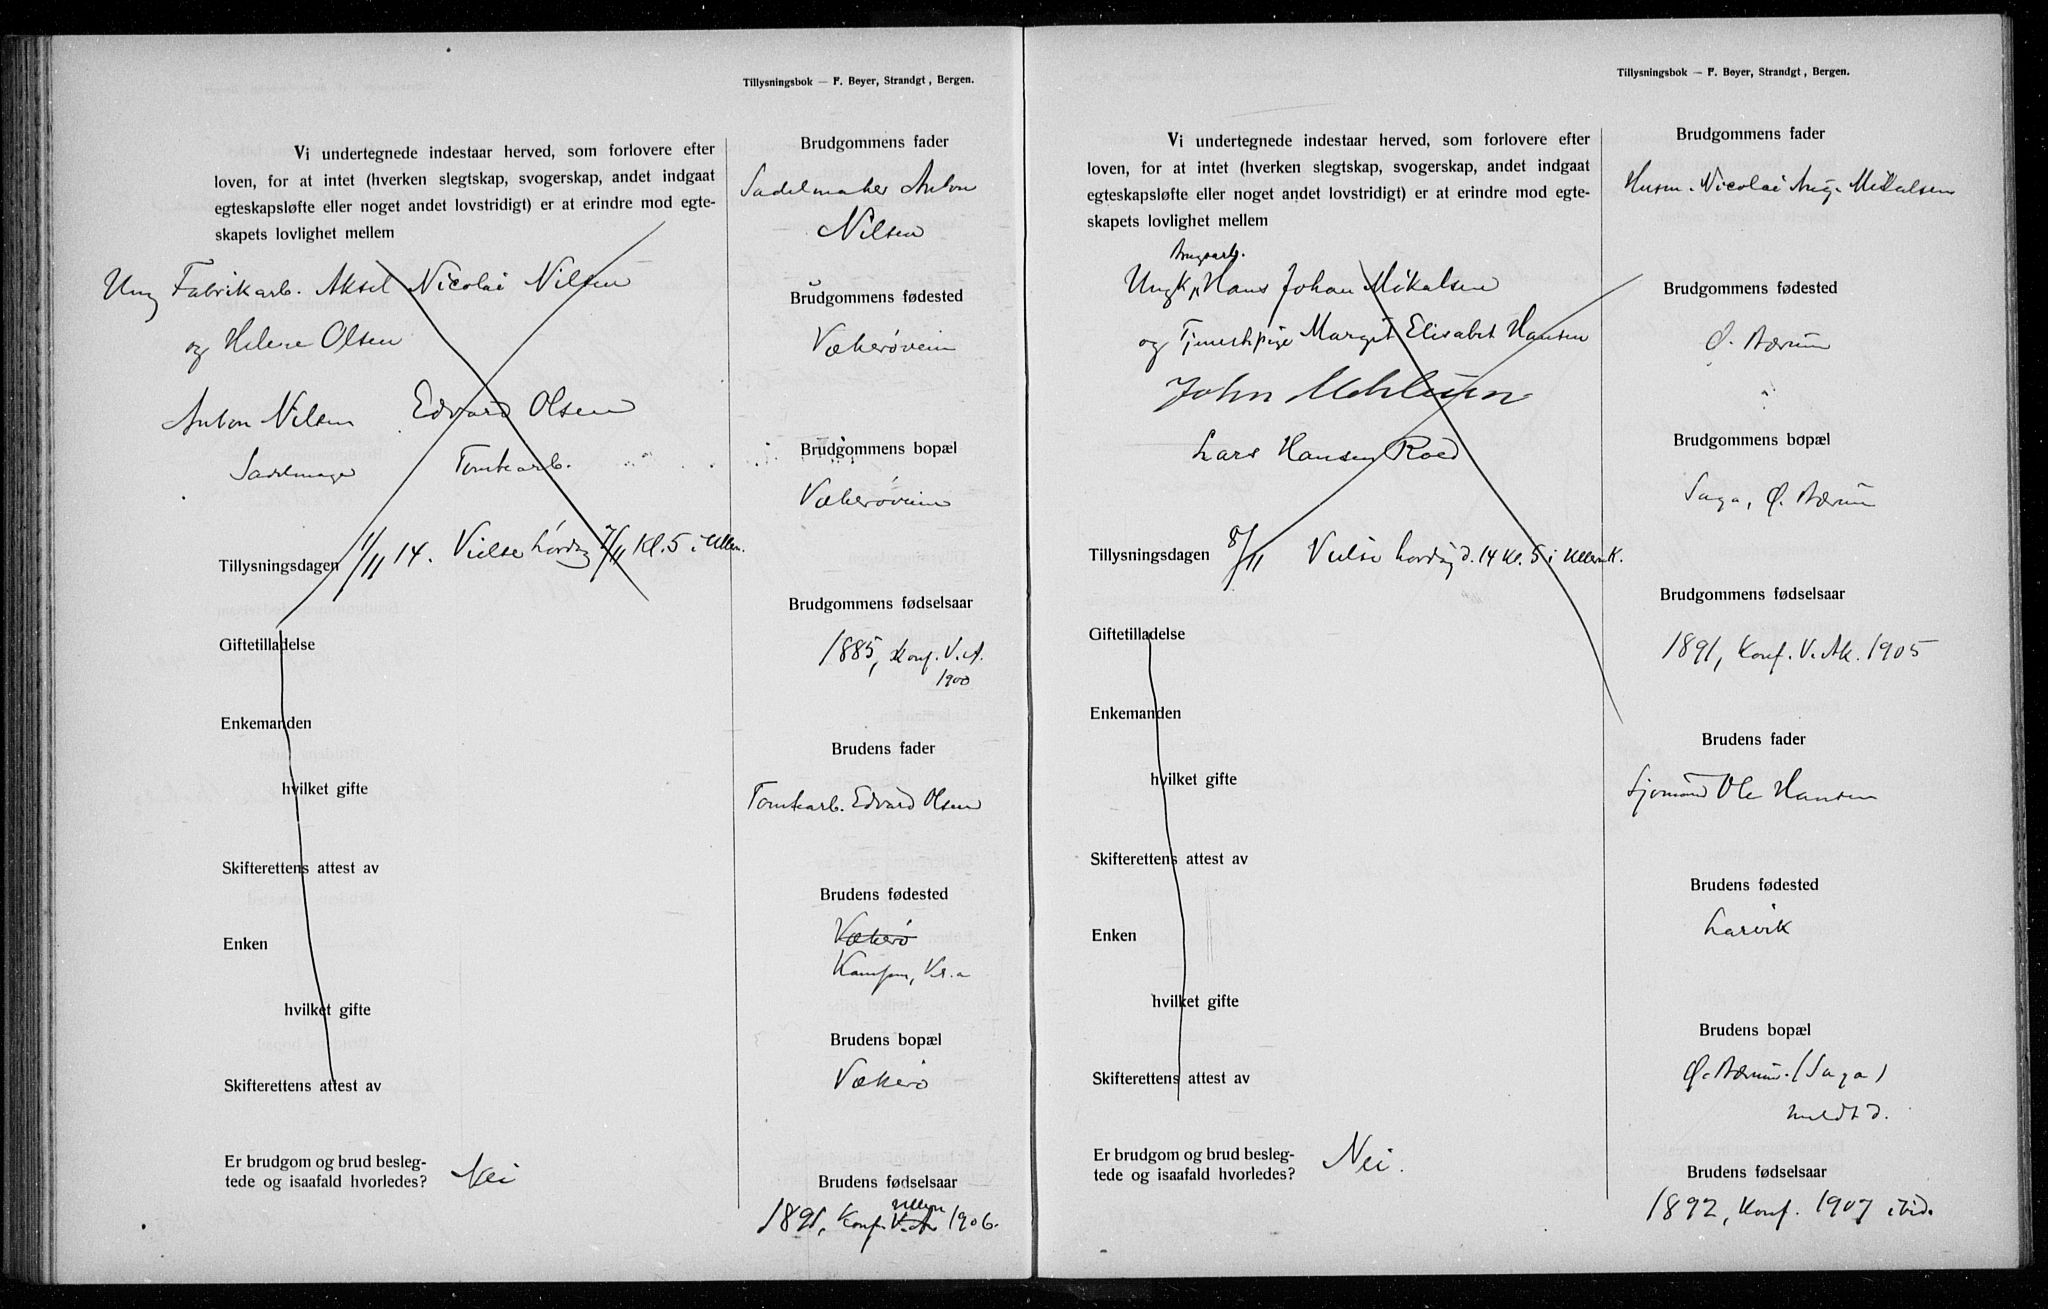 Tillysningsbok — F. Beyer, Strandgt, Bergen.
Vi undertegnede indestaar herved, som forlovere efter
loven, for at intet (hverken slegtskap, svogerskap, andet indgaat
egteskapsløfte eller noget andet lovstridigt) er at erindre mod egte-
skapets lovlighet mellem
Ung Fabrikarb. Aksel Nicolai Nilsen
og Helene Olsen
Anton Nilsen Edvard Olsen
Sadelmager Tomtearb.
Tillysningsdagen 1/11 14. Vielse Lørdag 7/11 Kl. 5 i Ullern.
Giftetilladelse
Enkemanden
hvilket gifte
Skifterettens attest av
Enken
hvilket gifte
Skifterettens attest av
Er brudgom og brud besleg-
tede og isaafald hvorledes? Nei
Brudgommens fader
Sadelmaker Anton
Nilsen
Brudgommens fødested
Vækerøveien
Brudgommens bopæl
Vækerøveien
Brudgommens fødselsaar
1885, Konf. V. A.
1900
Brudens fader
Tomtearb. Edvard Olsen
Brudens fødested
Vækerø
Kampen, Kr.a
Brudens bopæl
Vækerø
Brudens fødselsaar
Ullern
1891, Konf. V. Ak 1906.
Tillysningsbok — F. Beyer, Strandgt, Bergen.
Vi undertegnede indestaar herved, som forlovere efter
loven, for at intet (hverken slegtskap, svogerskap, andet indgaat
egteskapsløfte eller noget andet lovstridigt) er at erindre mod egte-
skapets lovlighet mellem
Brugsarb.
Ungk. Hans Johan Mikalsen
og Tjenestpige Margit Elisabet Hansen
John
Lars Hansen Roed
Tillysningsdagen 8/11 Vielse Lørdag d. 14 Kl. 5 i Ullern K.
Giftetilladelse
Enkemanden
hvilket gifte
Skifterettens attest av
Enken
hvilket gifte
Skifterettens attest av
Er brudgom og brud besleg-
tede og isaafald hvorledes? Nei.
Brudgommens fader
Husm. Nicolai Aug. Mikalsen
Brudgommens fødested
Ø. Bærum
Brudgommens bopæl
Saga, Ø. Bærum
Brudgommens fødselsaar
1891, Konf. V. Ak. 1905
Brudens fader
Sjømand Ole Hansen
Brudens fødested
Larvik
Brudens bopæl
Ø. Bærum. (Saga)
meldt d.
Brudens fødselsaar
1892, Konf. 1907